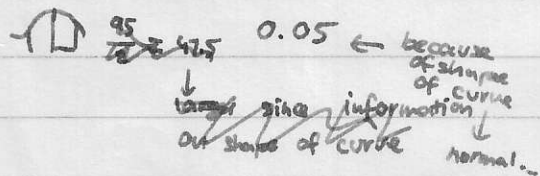 95/2 = 47.5 0.05 ← because
of shape
of curve
↓
since information
↓
our shape of curve
normal...